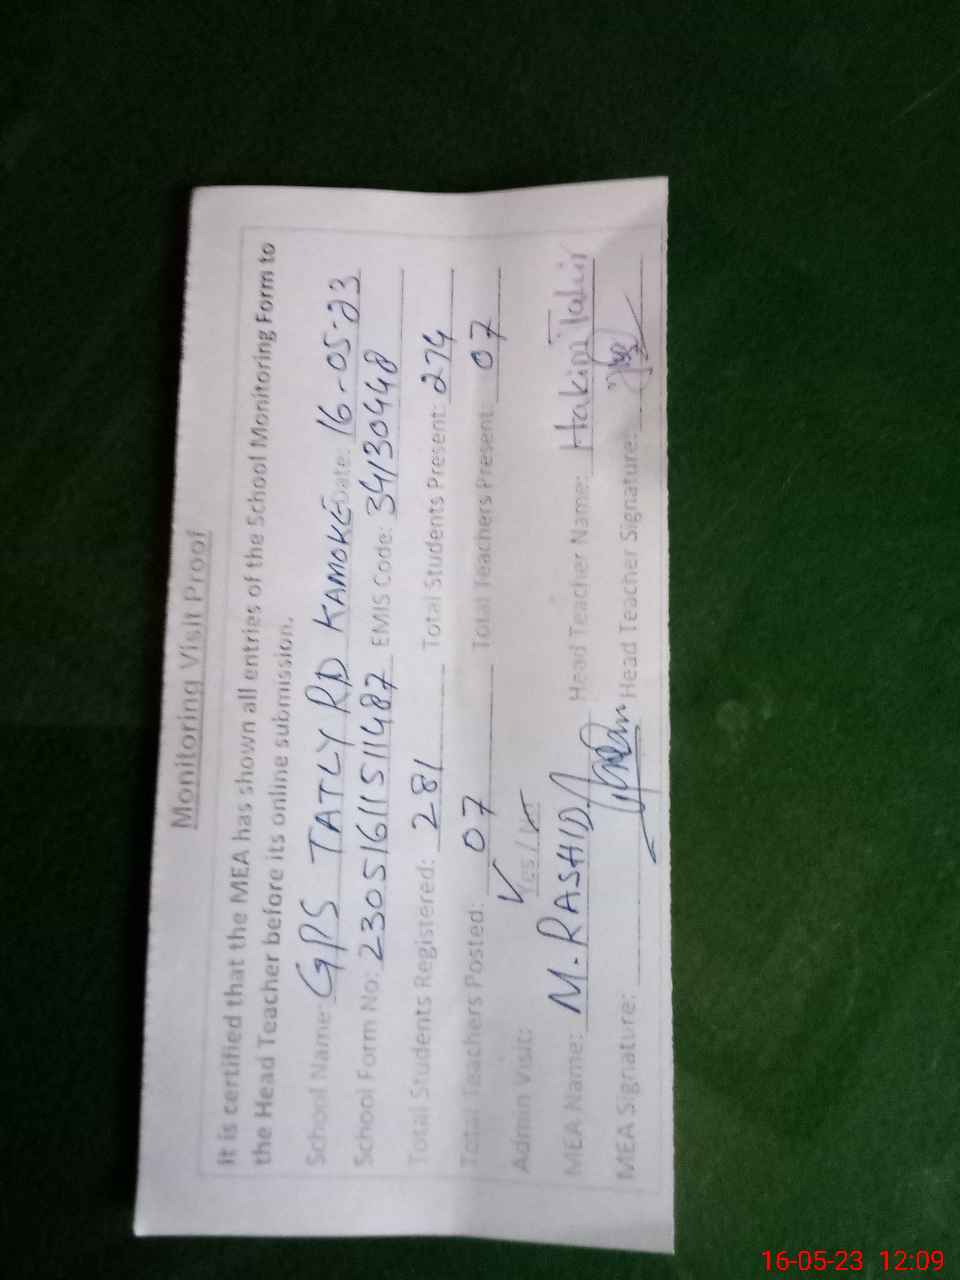 Monitoring Visit Proof
It is certified that the MEA has shown all entries of the School Monitoring Form to
the Head Teacher before its online submission.
School Name: GPS TATLY RD KAMOKE Date: 16-05-23
School Form No: 23051611511487 EMIS Code: 34130448
Total Students Registered: 281 Total Students Present: 274
Total Teachers Posted: 07 Total Teachers Present: 07
Admin Visit: Yes / No
MEA Name: M. RASHID Head Teacher Name: Hakim Tahir
MEA Signature: Head Teacher Signature:
16-05-23 12:09